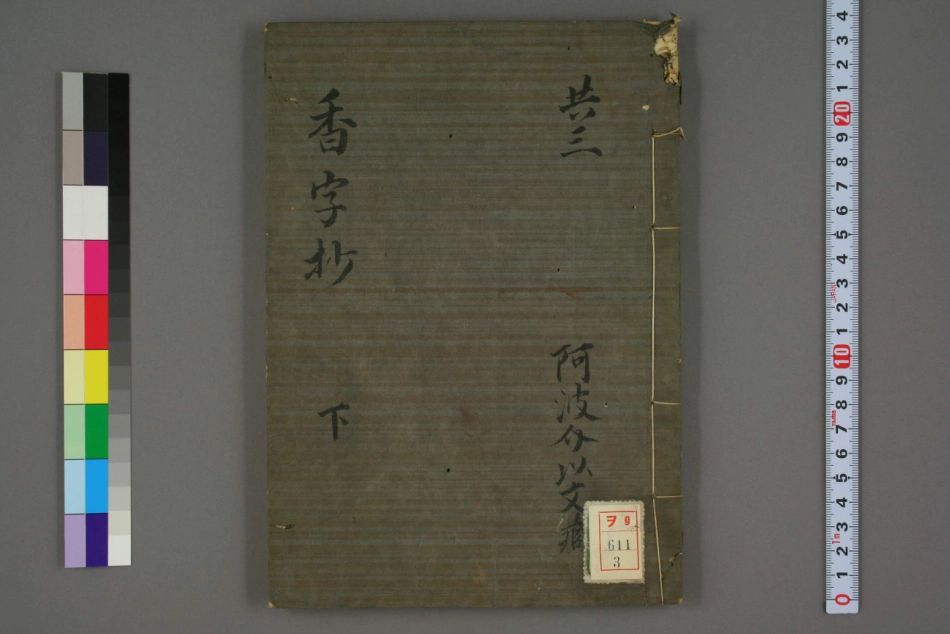 共三
阿波介以文藏
香字抄 下
ヲ 9
611
3
4
3
2
1
20
9
8
7
6
5
4
3
2
1
10
9
8
7
6
5
4
3
2
1
0